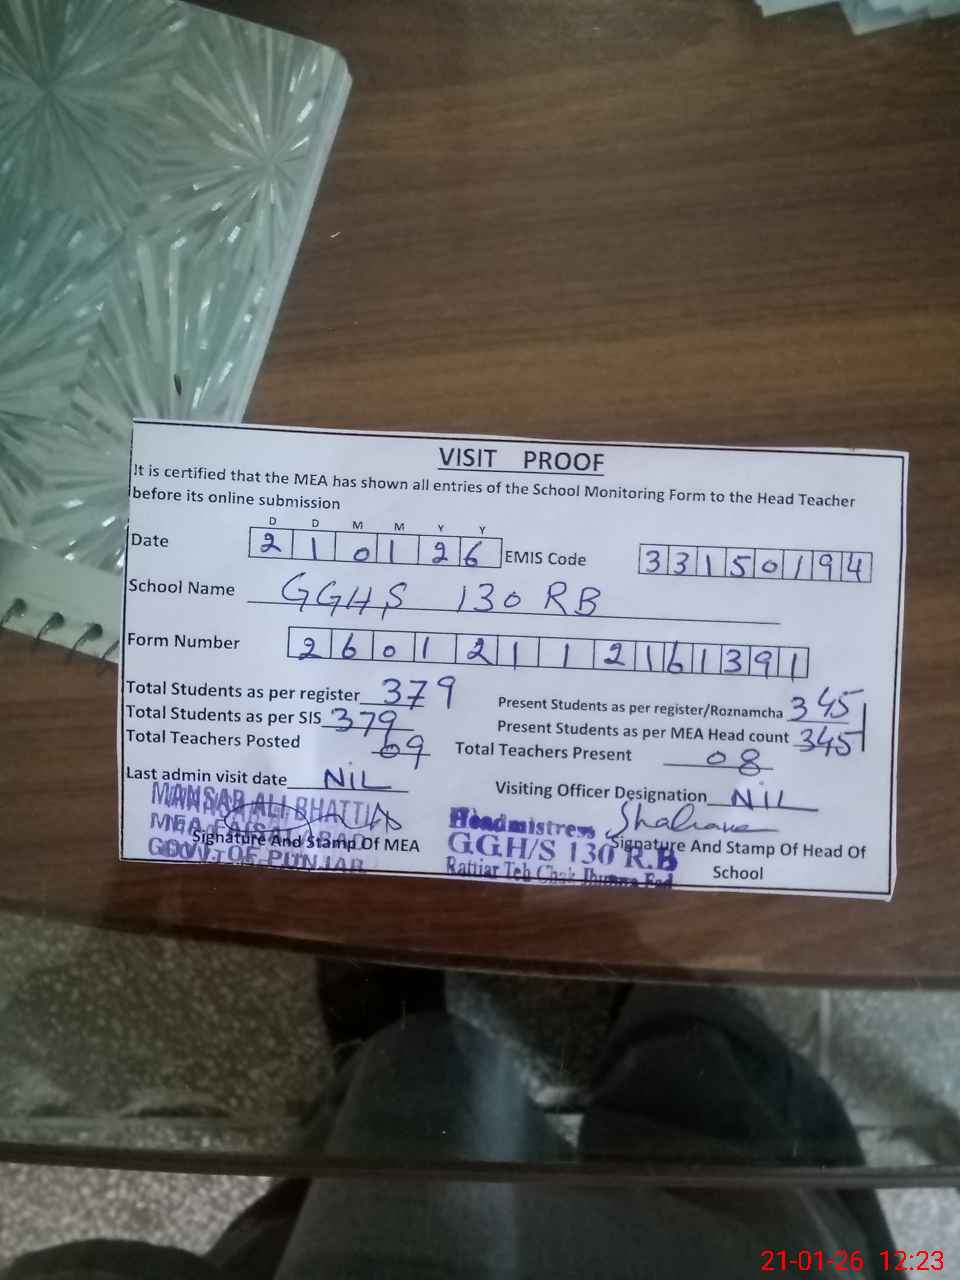 VISIT PROOF
It is certified that the MEA has shown all entries of the School Monitoring Form to the Head Teacher
before its online submission
D D M M Y Y
Date 2 1 0 1 2 6 EMIS Code 3 3 1 5 0 1 9 4
School Name GGHS 130 RB
Form Number 2 6 0 1 2 1 1 2 1 6 1 3 9 1
Total Students as per register 379 Present Students as per register/Roznamcha 345
Total Students as per SIS 379 Present Students as per MEA Head count 345
Total Teachers Posted 09 Total Teachers Present 08
Last admin visit date NIL Visiting Officer Designation NIL
MANSAB ALI BHATTI
MEA FAISALABAD
GOVT OF PUNJAB
Signature And Stamp Of MEA
Headmistress
GGH/S 130 R.B
Rattiar Teh Chak Jhumra Fsd
Signature And Stamp Of Head Of
School
21-01-26 12:23